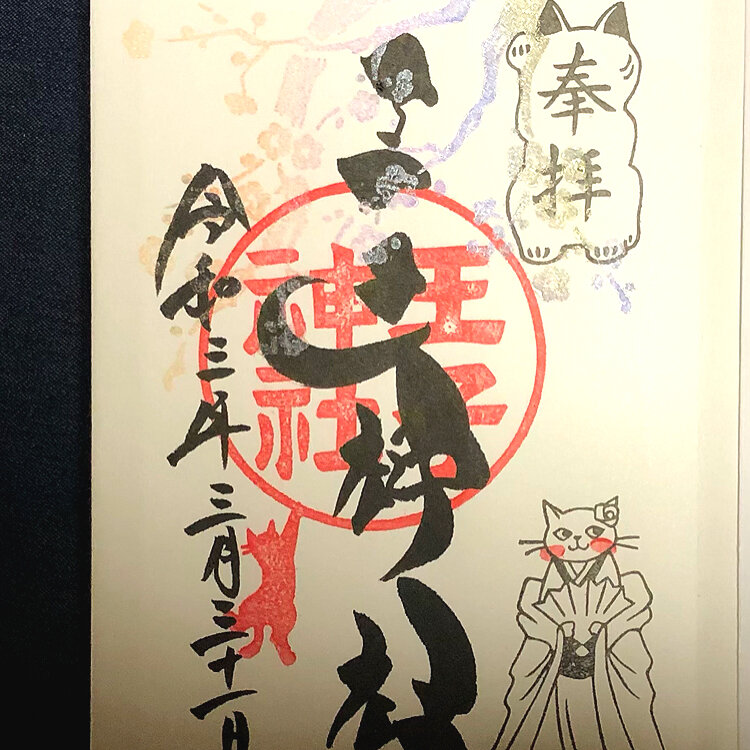 奉拝
王子神社
王子
神社
令和三年三月三十一日